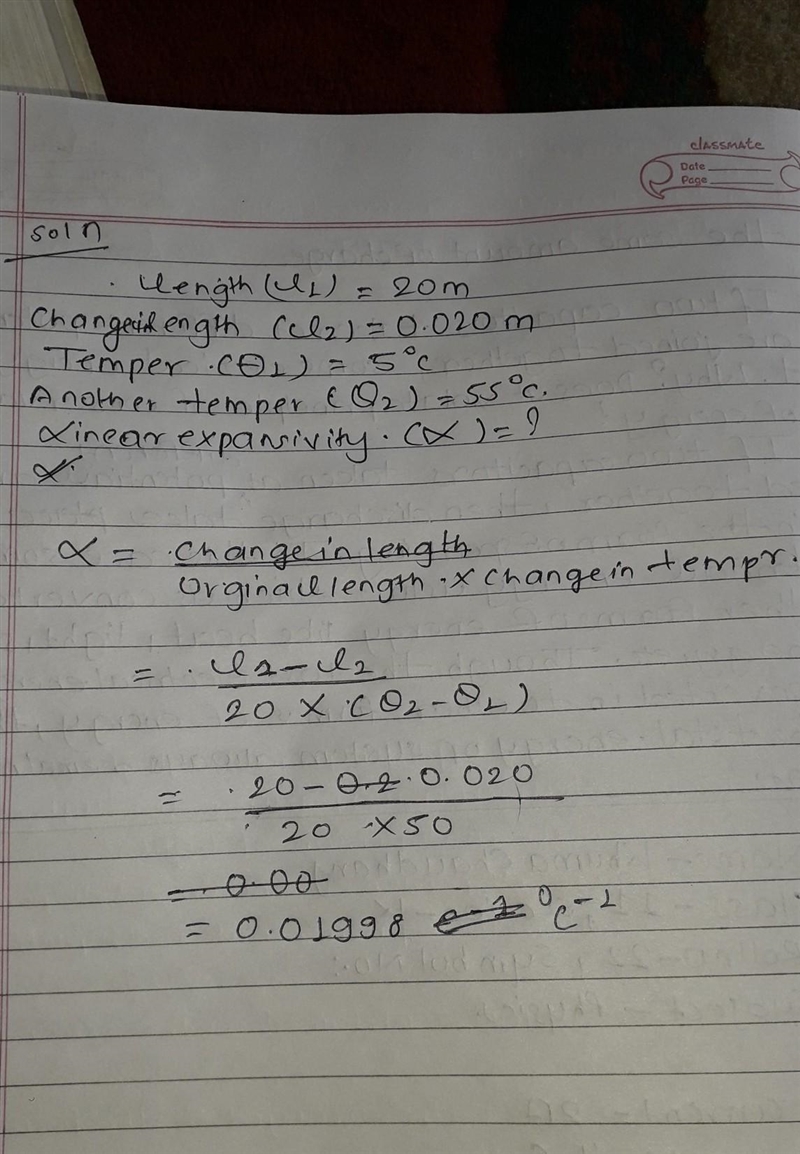 classmate
Date
Page
Soln
Length (l1) = 20m
Change in length (l2) = 0.020 m
Temper. (θ1) = 5°c
Another temper (θ2) = 55°c.
Linear expansivity. (α) = ?
α = Change in length
Orginal length. × change in tempr.
= l1 - l2
20 × (θ2 - θ1)
= 20 - 0.2 0.020
20 × 50
= 0.00
= 0.01998 °C-1